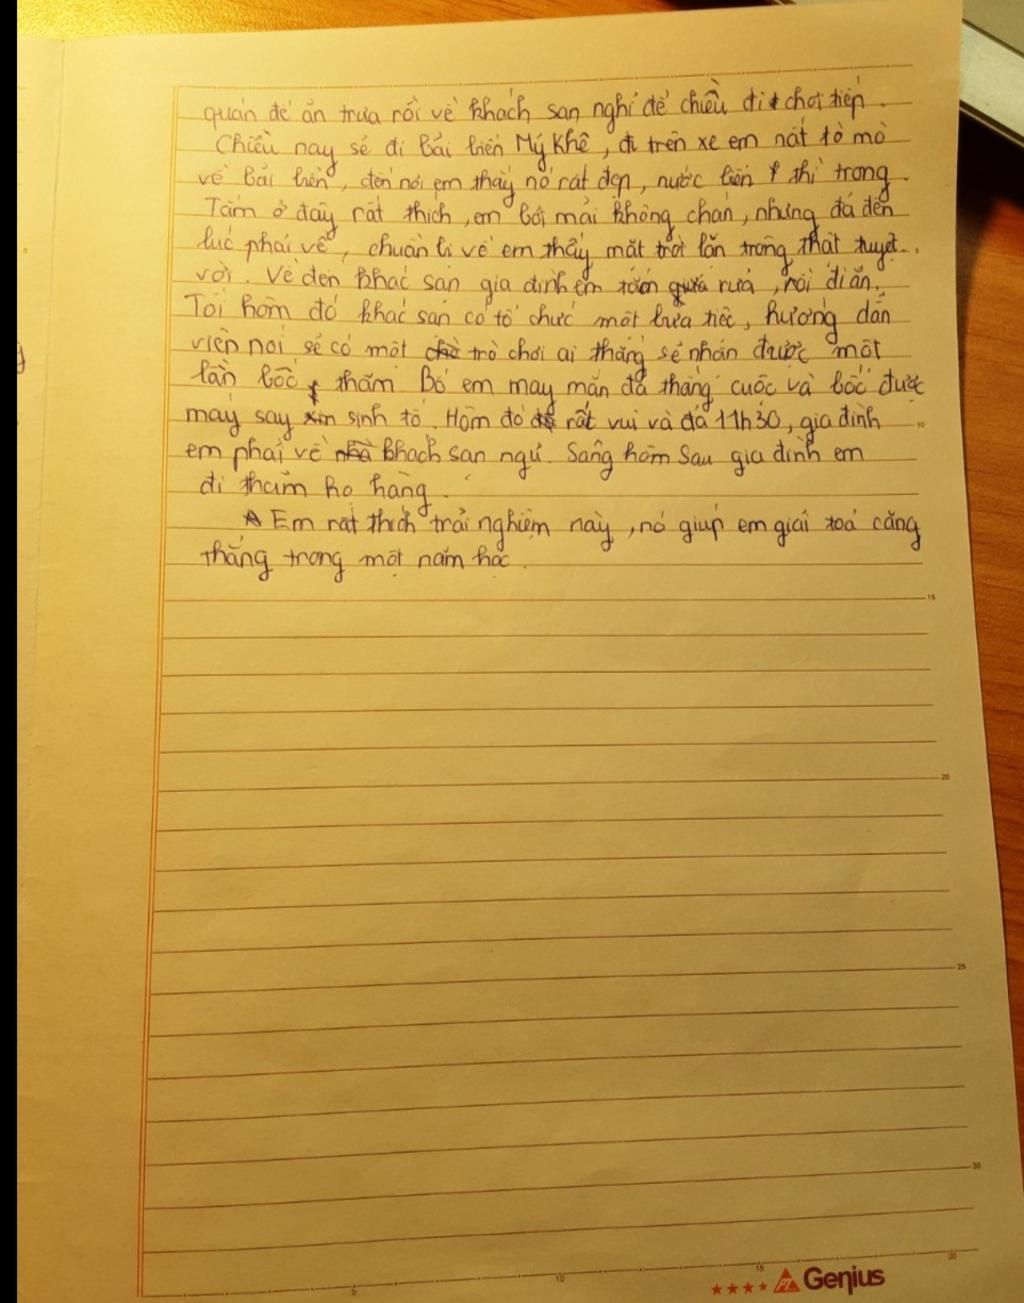 quán để ăn trưa rồi về khách sạn nghỉ để chiều đi chơi tiếp.
Chiều nay sẽ đi bãi biển Mỹ Khê, đi trên xe em rất tò mò
về bãi biển, đến nơi em thấy nó rất đẹp, nước biển thì trong.
Tắm ở đây rất thích, em bơi mãi không chán, nhưng đã đến
lúc phải về, chuẩn bị về em thấy mặt trời lặn trông thật tuyệt
vời. Về đến khác sạn gia đình em rửa, rồi đi ăn.
Tối hôm đó khác sạn có tổ chức một bữa tiệc, hướng dẫn
viên nói sẽ có một trò chơi ai thắng sẽ nhận được một
lần bốc thăm. Bố em may mắn đã thắng cuộc và bốc được
máy say sinh tố. Hôm đó rất vui và đã 11h30, gia đình
em phải về khách sạn ngủ. Sáng hôm sau gia đình em
đi thăm họ hàng.
Em rất thích trải nghiệm này, nó giúp em giải toả căng
thẳng trong một năm học.
5
10
15
20
10
15
20
25
30
FT Genius